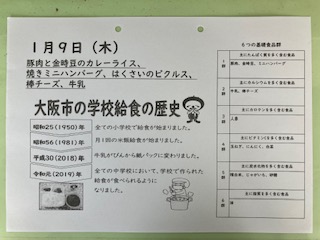 1月9日（木）
豚肉と金時豆のカレーライス、
焼きミニハンバーグ、はくさいのピクルス、
棒チーズ、牛乳
大阪市の学校給食の歴史
昭和25(1950)年
全ての小学校で給食が始まりました。
昭和56(1981)年
月1回の米飯給食が始まりました。
平成30(2018)年
牛乳がびんから紙パックに変わりました。
令和元(2019)年
全ての中学校において、学校で作られた
給食が食べられるように
なりました。
6つの基礎食品群
1群
主にたんぱく質を多く含む食品
豚肉、金時豆、ミニハンバーグ
2群
主にカルシウムを多く含む食品
牛乳、棒チーズ
3群
主にカロテンを多く含む食品
人参
4群
主にビタミンCを多く含む食品
玉ねぎ、にんにく、白菜
5群
主に炭水化物を多く含む食品
精白米、じゃがいも、砂糖
6群
主に脂質を多く含む食品